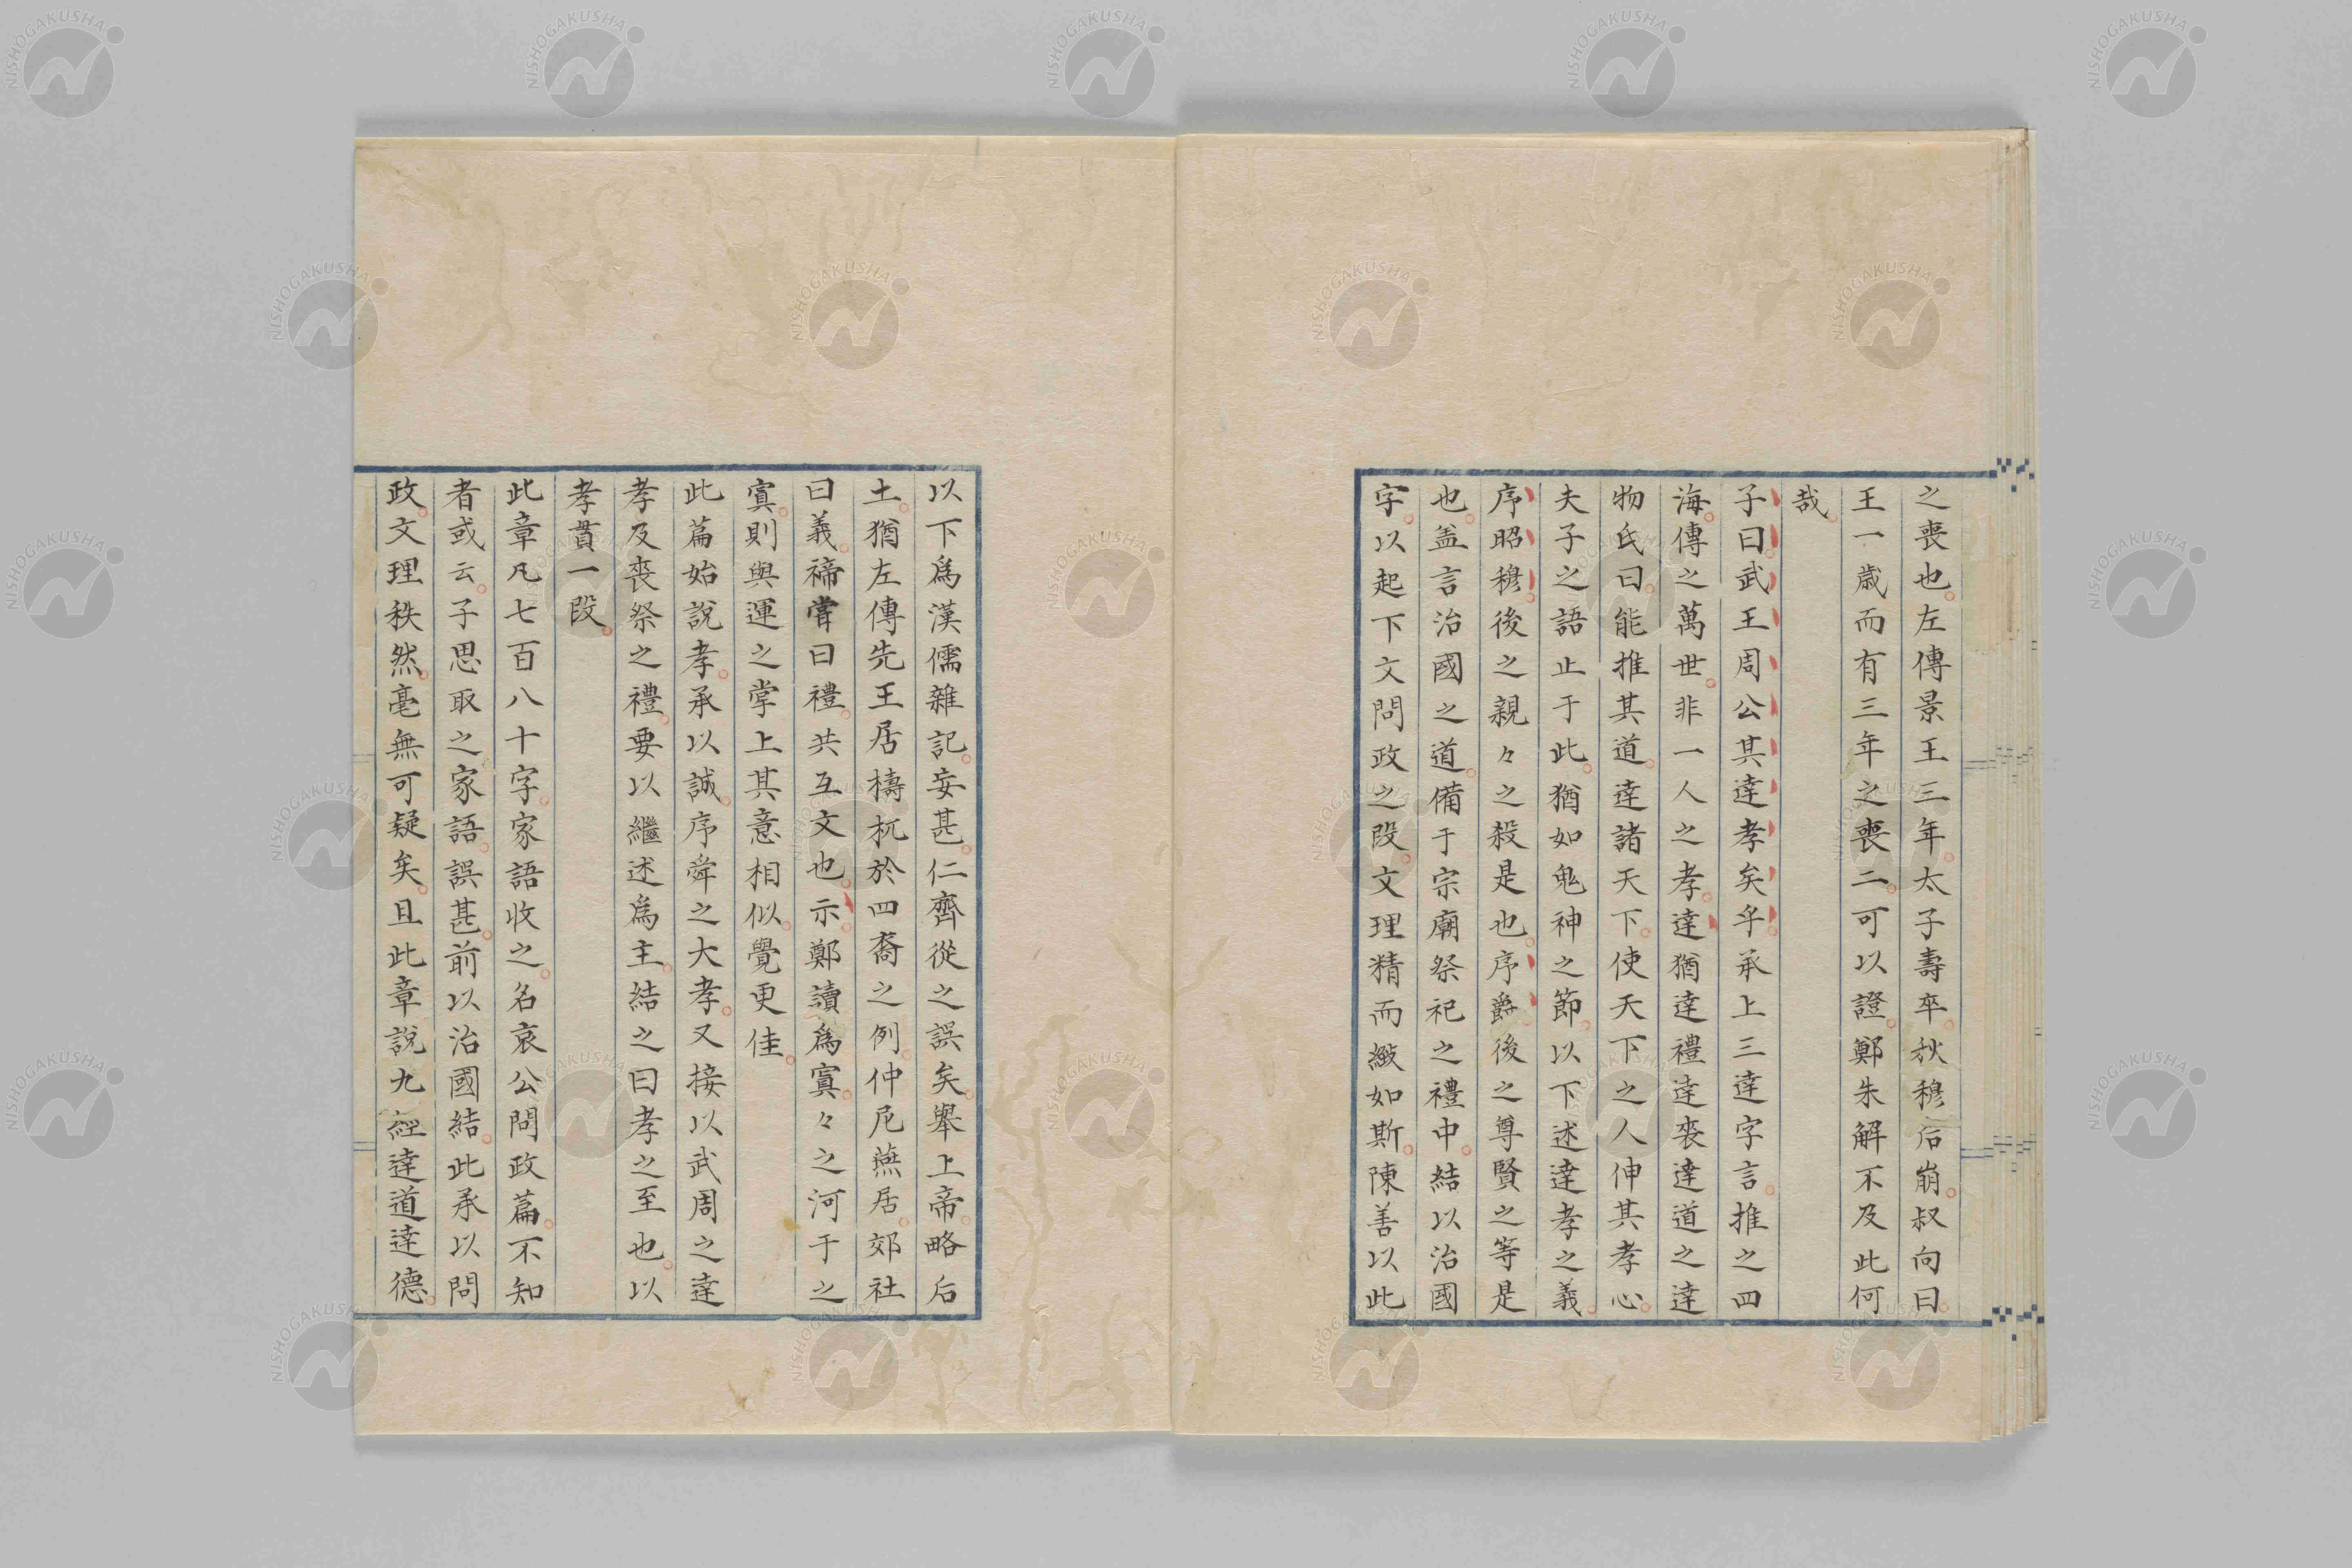 之喪也左傳景王三年太子壽卒秋穆后崩叔向曰
王一歲而有三年之喪二可以證鄭朱解不及此何
哉
子曰武王周公其達孝矣乎承上三達字言推之四
海傳之萬世非一人之孝達猶達禮達喪達道之達
物氏曰能推其道達諸天下使天下之人伸其孝心
夫子之語止于此猶如鬼神之節以下述達孝之義
序昭穆後之親々之殺是也序爵後之尊賢之等是
也盖言治國之道備于宗廟祭祀之禮中結以治國
字以起下文問政之段文理精而緻如斯陳善以此
以下爲漢儒雜記妄甚仁齊從之誤矣舉上帝略后
土猶左傳先王居檮杌於四裔之例仲尼燕居郊社
曰義禘嘗曰禮共互文也示鄭讀爲寘々之河于之
寘則與運之掌上其意相似覺更佳
此篇始說孝承以誠序舜之大孝又接以武周之達
孝及喪祭之禮要以繼述爲主結之曰孝之至也以
孝貫一段
此章凡七百八十字家語收之名哀公問政篇不知
者或云子思取之家語誤甚前以治國結此承以問
政文理秩然毫無可疑矣且此章說九經達道達德
NISHOGAKUSHA